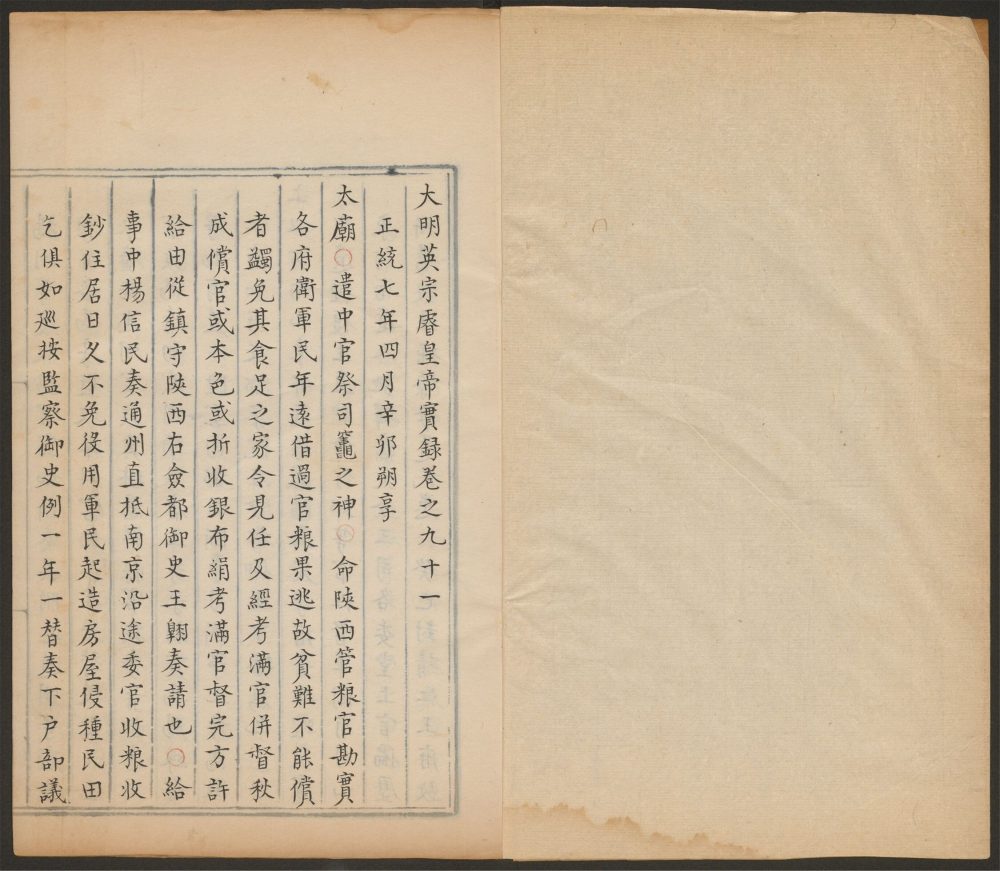 大明英宗睿皇帝實録卷之九十一
正統七年四月辛卯朔享
太廟○遣中官祭司竈之神○命陝西管粮官勘實
各府衛軍民年遠借過官粮果逃故貧難不能償
者蠲免其食足之家令見任及經考滿官併督秋
成償官或本色或折收銀布絹考滿官督完方許
給由從鎮守陝西右僉都御史王翺奏請也○給
事中楊信民奏通州直抵南京沿途委官收粮收
鈔住居日久不免役用軍民起造房屋侵種民田
乞俱如廵按監察御史例一年一替奏下户部議